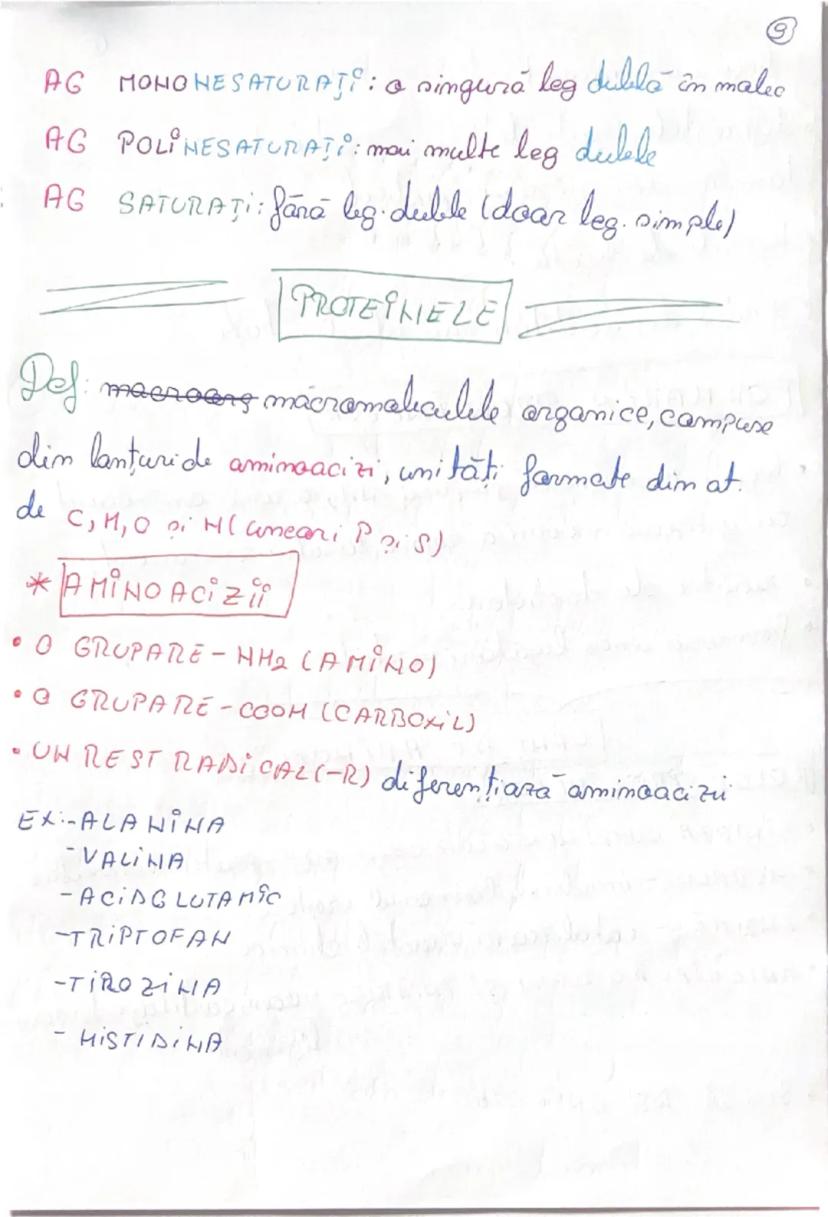 9
AG MONONESATURAȚI: o singură leg dublă în molec
AG POLINESATURAȚI: mai multe leg duble
AG SATURAȚI: fără leg. duble (doar leg. simple)
PROTEINELE
Def: macroorg macromoleculele organice, compuse
din lanțuri de aminoacizi, unități formate din at.
de C, H, O și N (uneori P și S)
* AMINOACIZII
• O GRUPARE -NH2 (AMINO)
• O GRUPARE -COOH (CARBOXIL)
• UN REST RADICAL (-R) diferențiază aminoacizii
EX: -ALANINA
-VALINA
-ACID GLUTAMIC
-TRIPTOFAN
-TIROZINA
-HISTIDINA